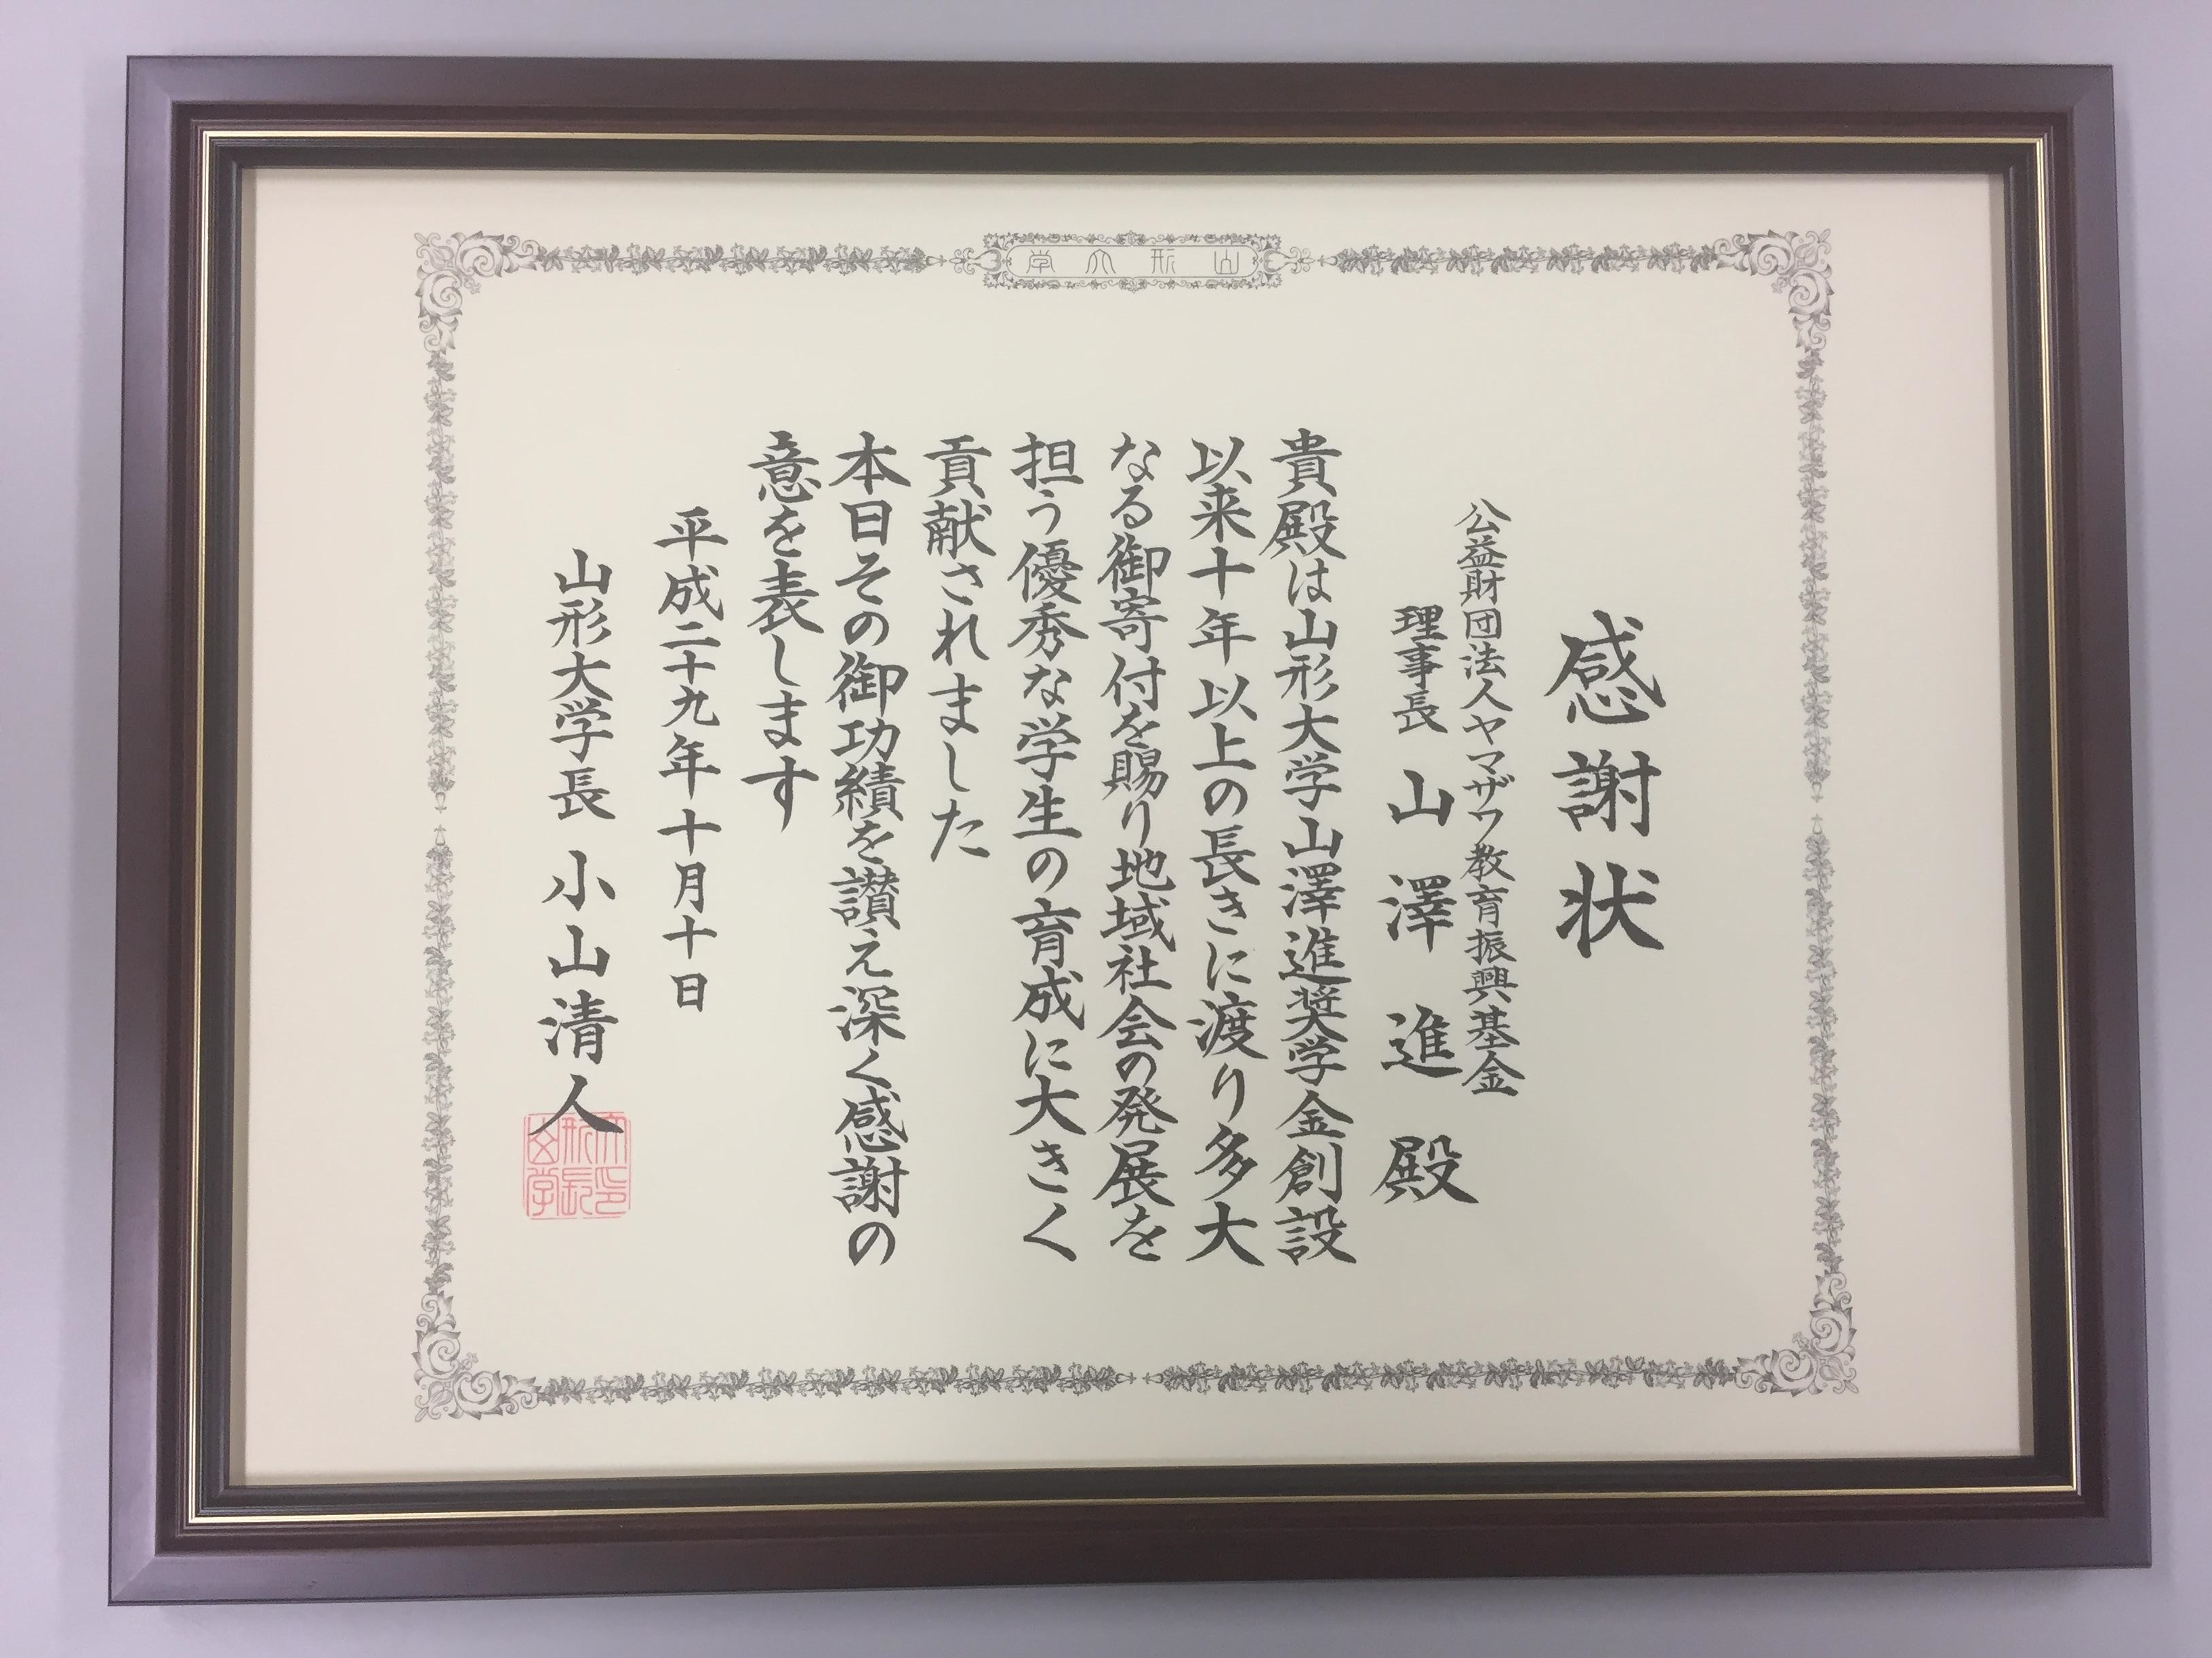 山形大学
感謝状
公益財団法人ヤマザワ教育振興基金
理事長 山澤進殿
貴殿は山形大学山澤進奨学金創設
以来十年以上の長きに渡り多大
なる御寄付を賜り地域社会の発展を
担う優秀な学生の育成に大きく
貢献されました
本日その御功績を讃え深く感謝の
意を表します
平成二十九年十月十日
山形大学長 小山清人